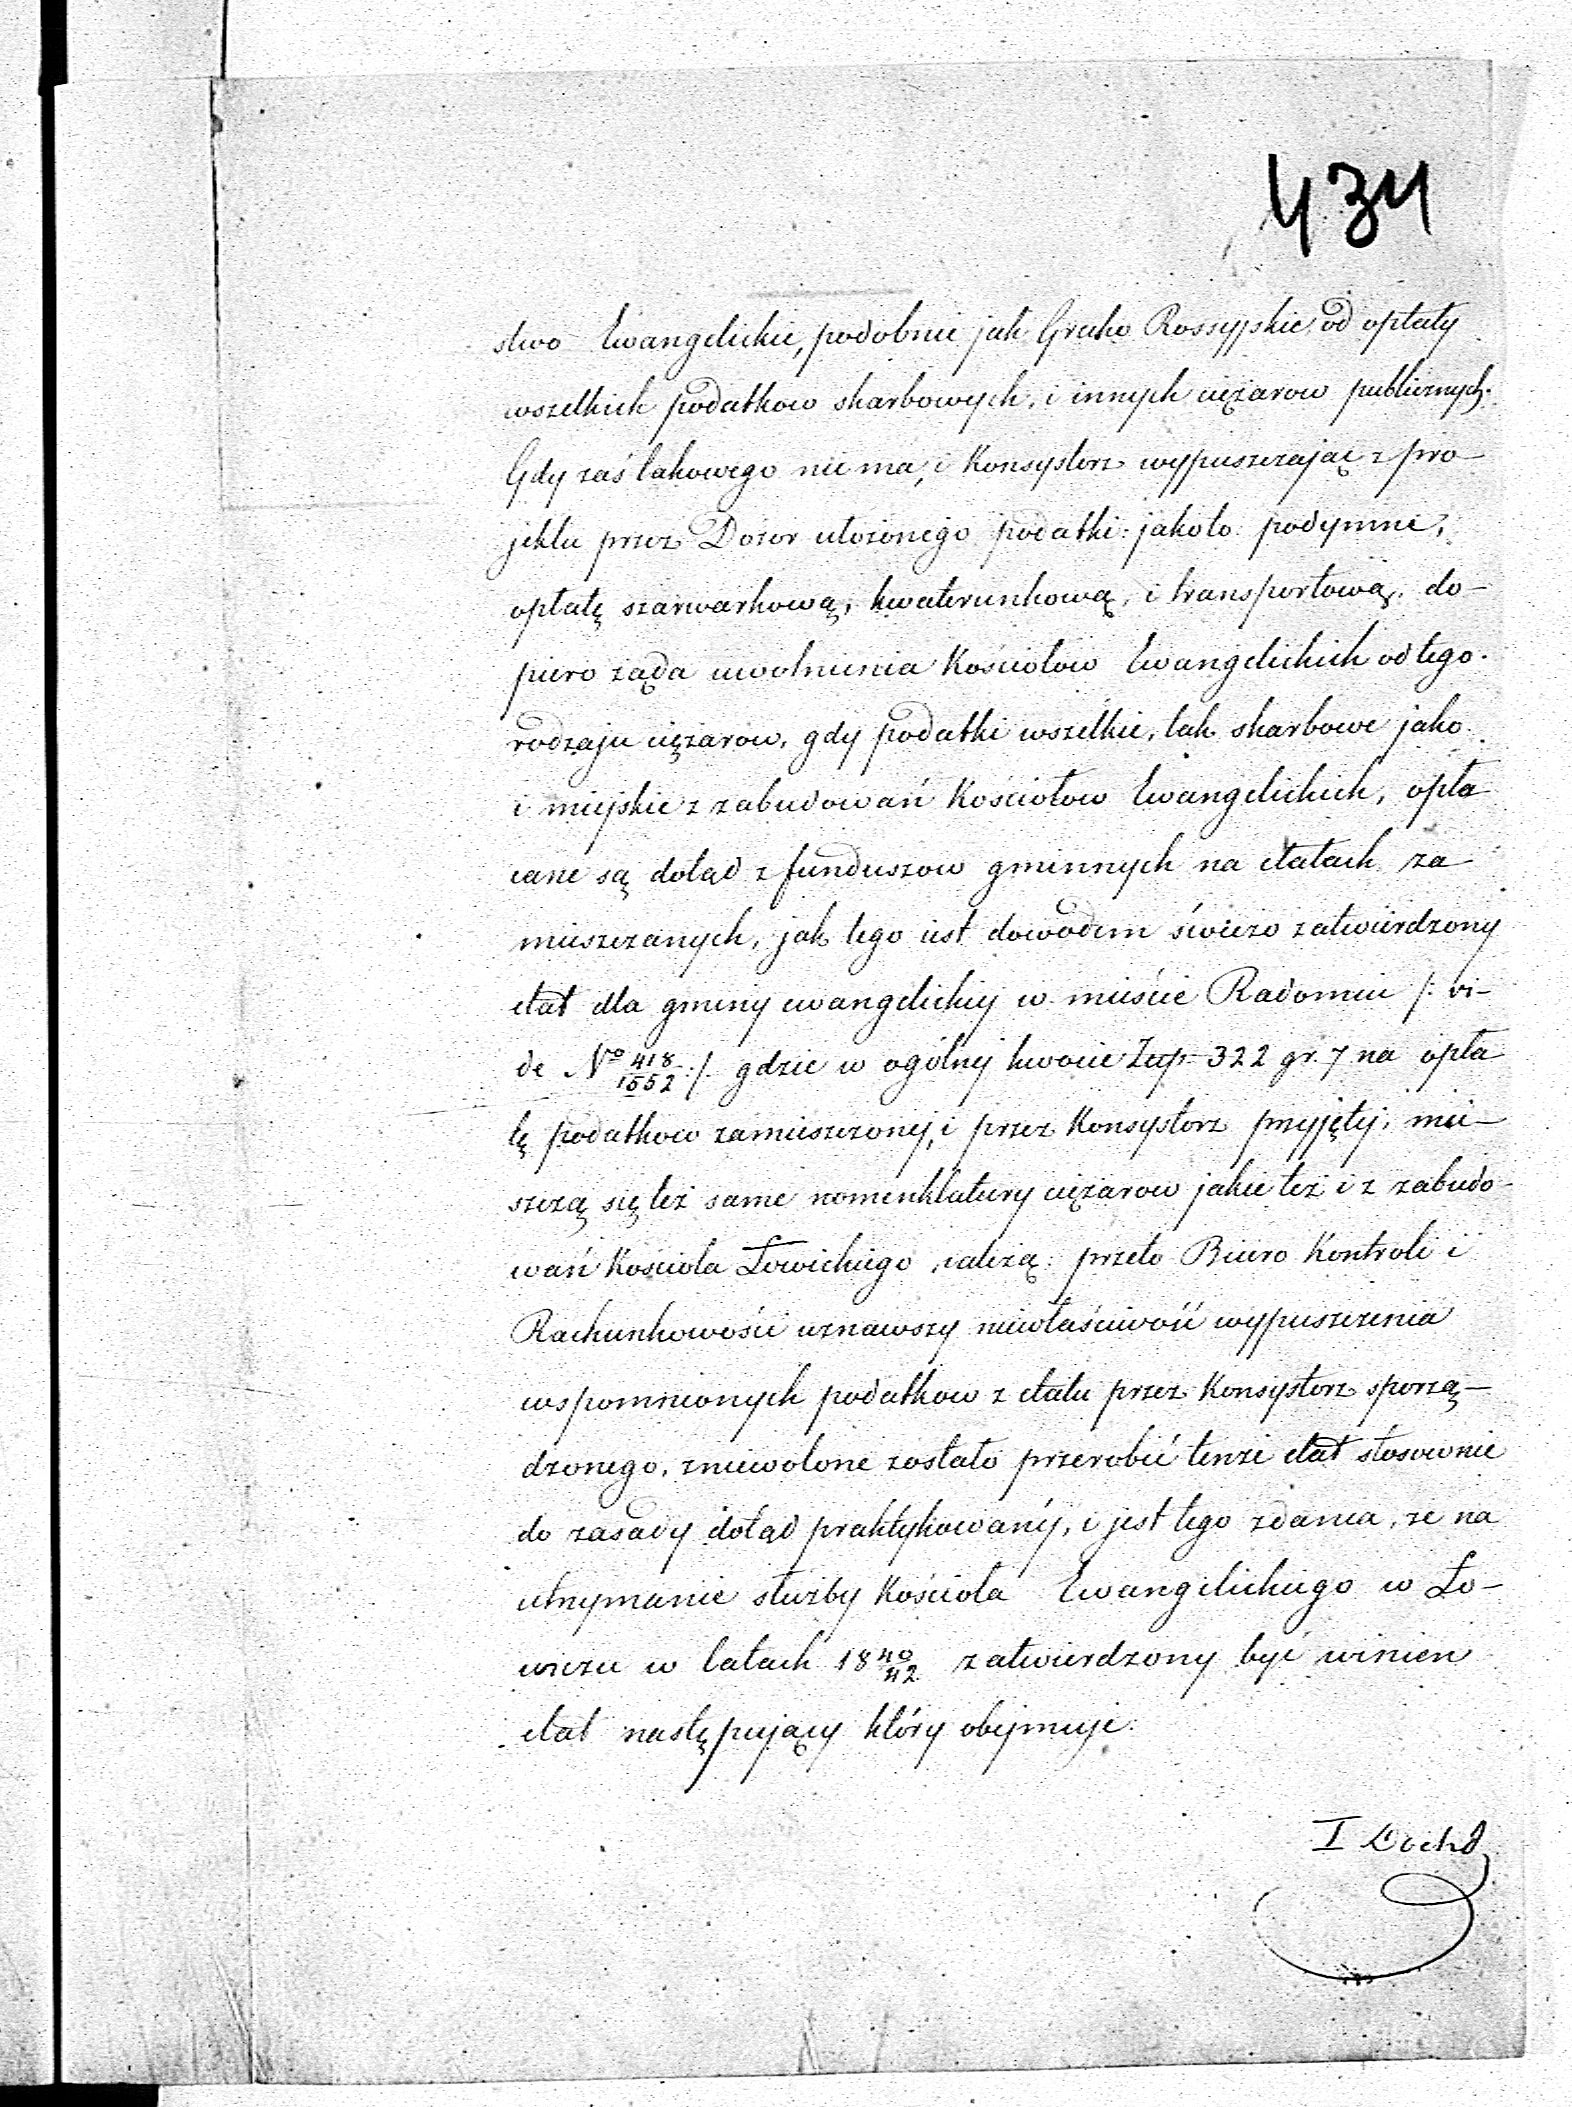 434
stwo Ewangelickie, podobnie jak Greko Rossyjskie od opłaty
wszelkich podatkow skarbowych, i innych ciężarow publicznych.
Gdy zaś takowego nie ma, i Konsystorz wypuszczając z pro-
jektu przez Dozor ułożonego podatki: jakoto podymne,
opłatę szarwarkową, kwaterunkową, i transportową, do-
piero żąda uwolnienia Kościołow Ewangelickich od tego
rodzaju ciężarow, gdy podatki wszelkie, tak skarbowe jako
i miejskie z zabudowań Kościołow Ewangelickich, opła
cane są dotąd z funduszow gminnych na etatach za
mieszczanych, jak tego iest dowodem świeżo zatwierdzony
etat dla gminy ewangelickiey w mieście Radomiu /: vi-
de No 418/1552 :/ gdzie w ogólnej kwocie Złp. 322 gr. 7 na opła
tę podatkow zamieszczonej, i przez Konsystorz przyjętej, mie-
szczą się też same nomenklatury ciężarow jakie też i z zabudo-
wań Kościoła Łowickiego należą: przeto Biuro Kontroli i
Rachunkowości uznawszy niewłaściwość wypuszczenia
wspomnionych podatkow z etatu przez Konsystorz sporzą-
dzonego, zniewolone zostało przerobić tenże etat stosownie
do zasady dotąd praktykowanéj, i jest tego zdania, że na
utrzymanie służby Kościoła Ewangelickiego w Ło-
wiczu w latach 1840/42 zatwierdzony być winien
etat następujący który obejmuje:
I Dochd